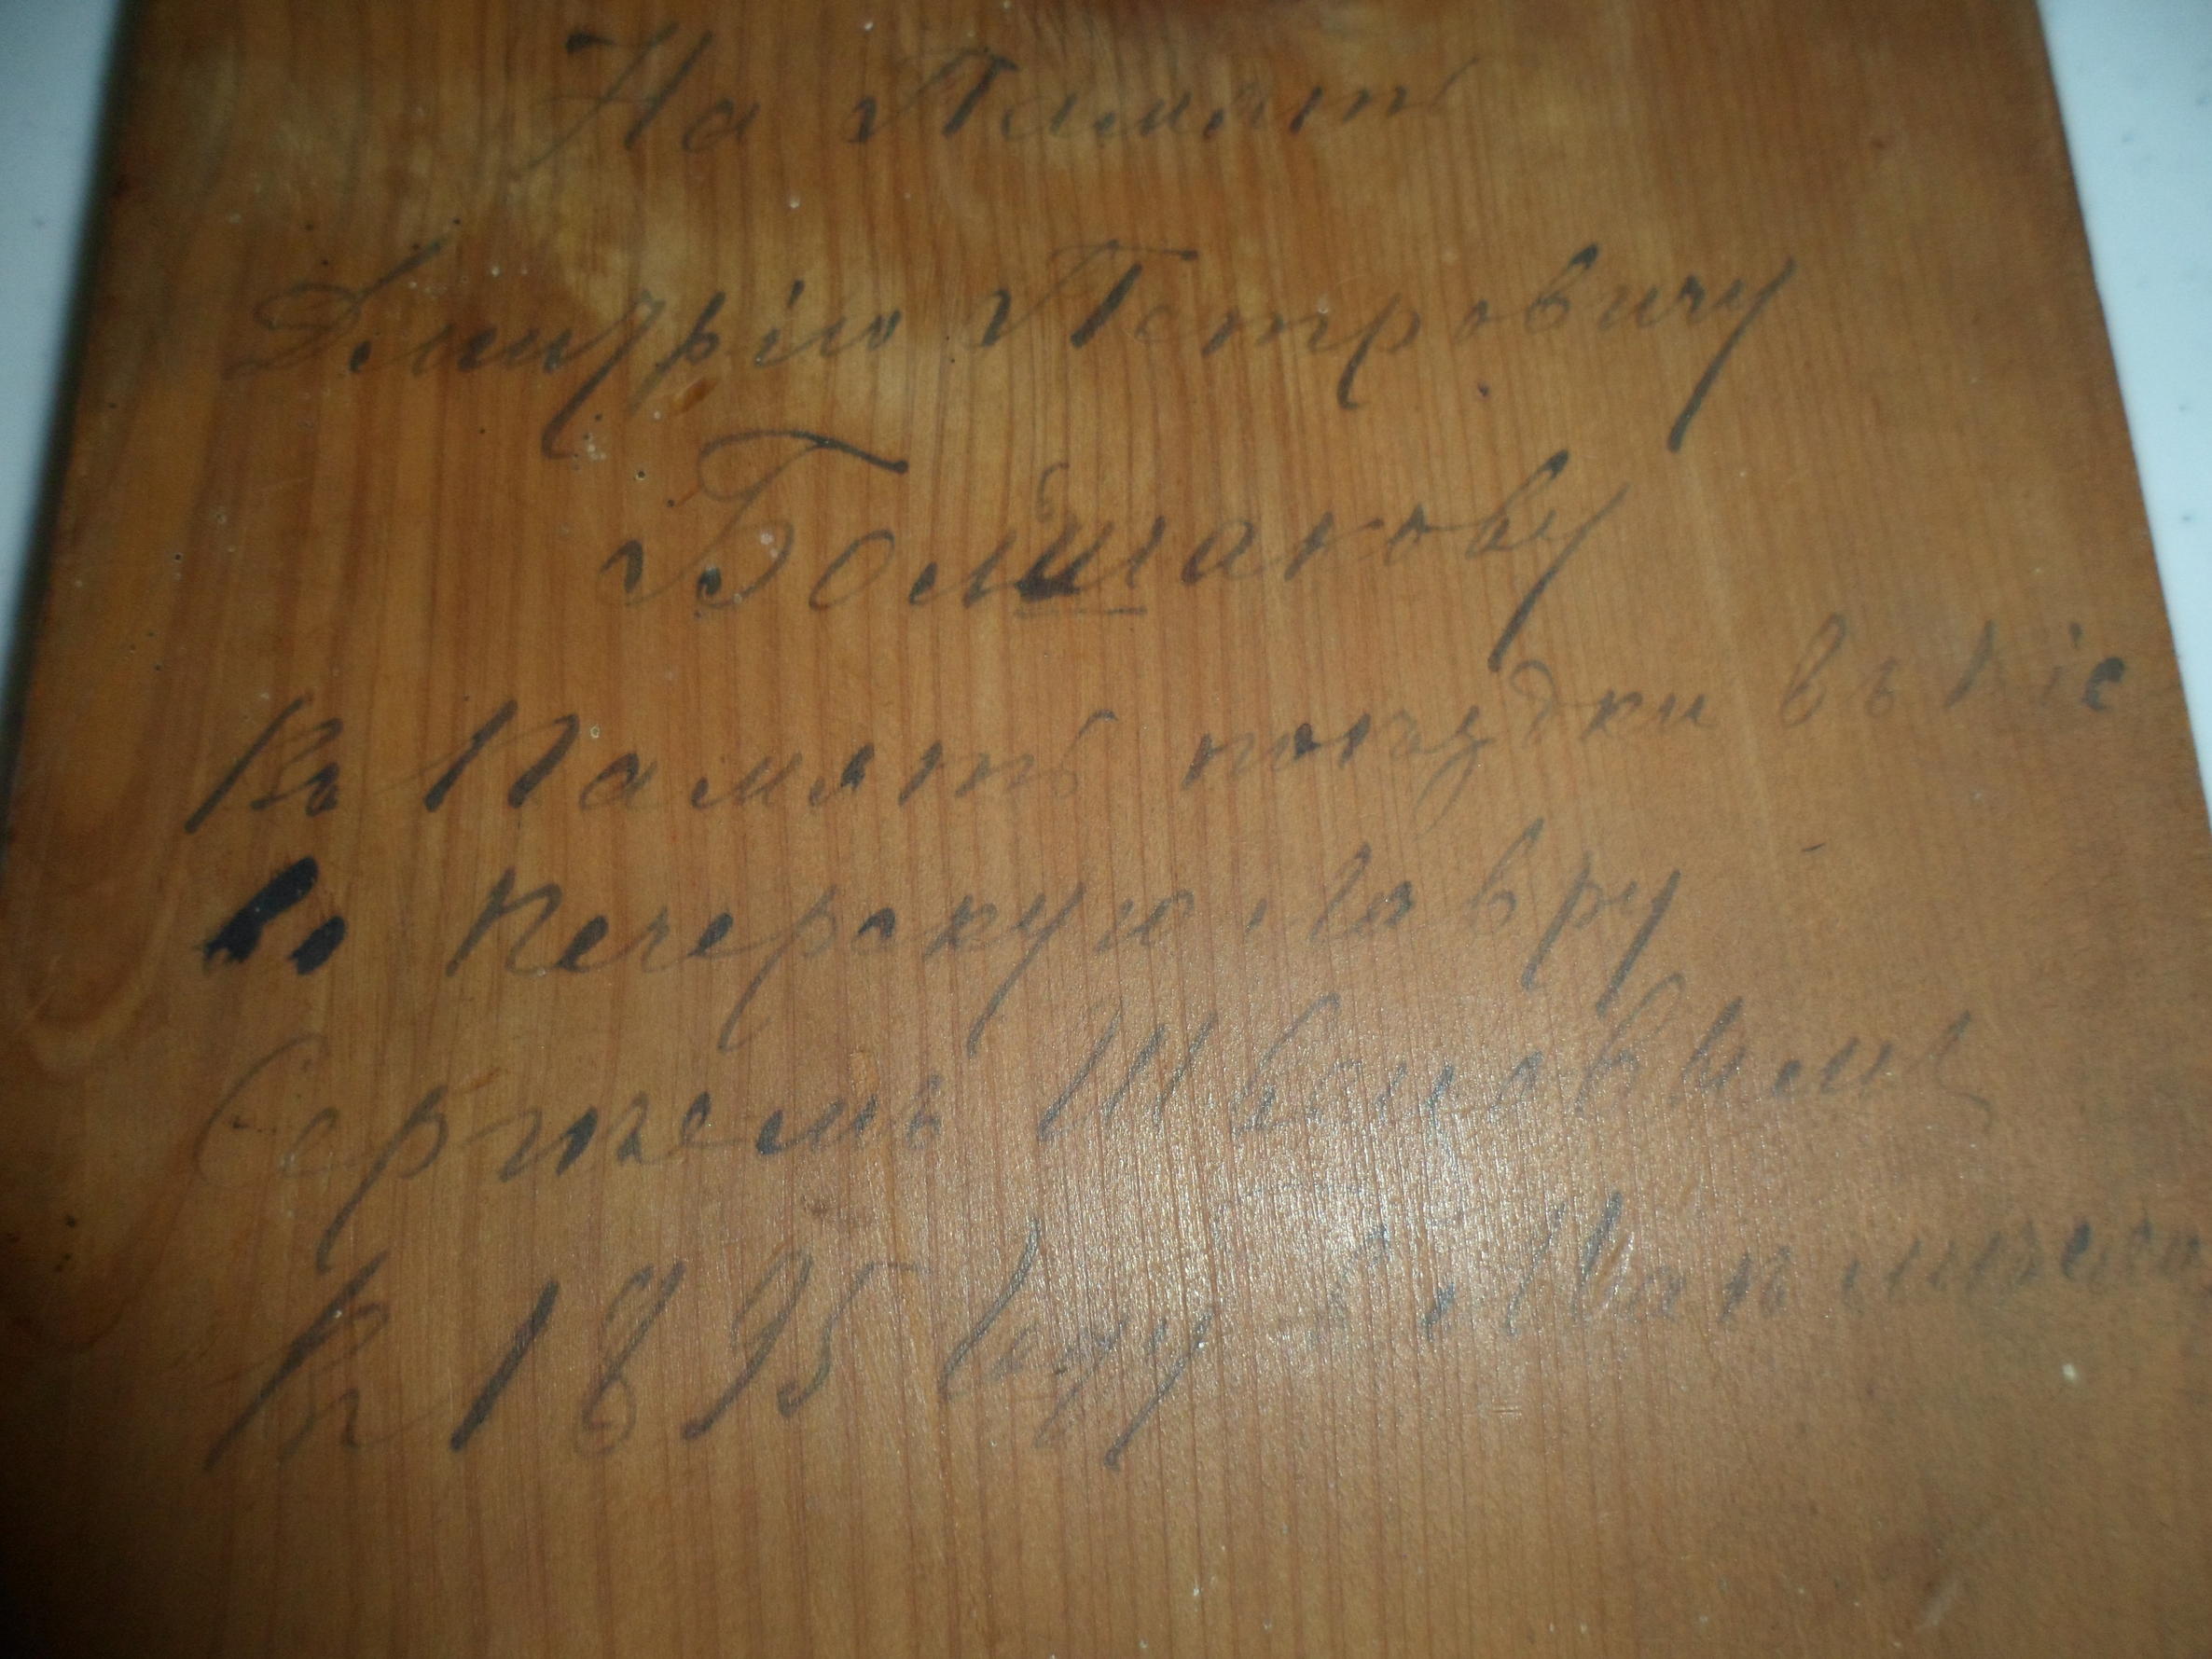 На Память
Дмитрію Петровичу
Большакову
Въ Память поездки въ Кіе
во Печерскую Лавру
Сергѣемъ Швецовымъ
Въ 1895 Году